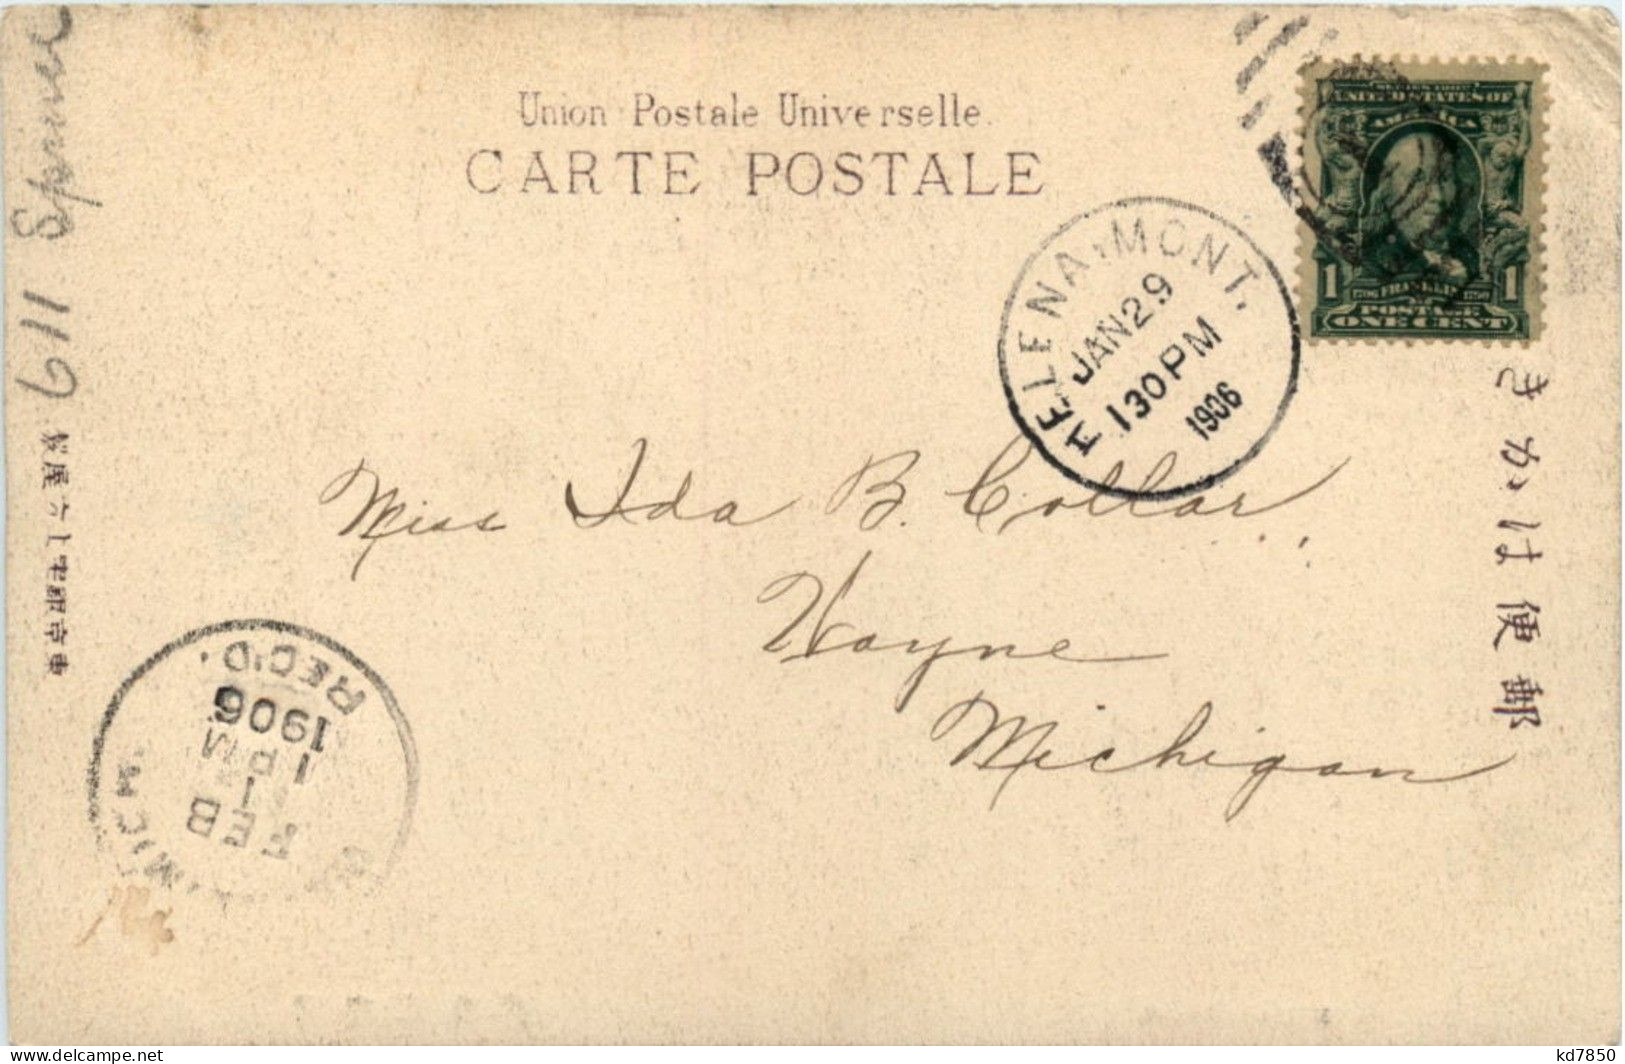 Union Postale Universelle.
CARTE POSTALE
611 Spruce
UNITED STATES OF
AMERICA
1 FRANKLIN 1
POSTAGE
ONE CENT
HELENA, MONT.
JAN 29
1 30 PM
1906
きかは便郵
Miss Ida B. Collar,
Wayne
Michigan
MICH.
FEB
1
1 PM
1906
REC'D.
delcampe.net
kd7850